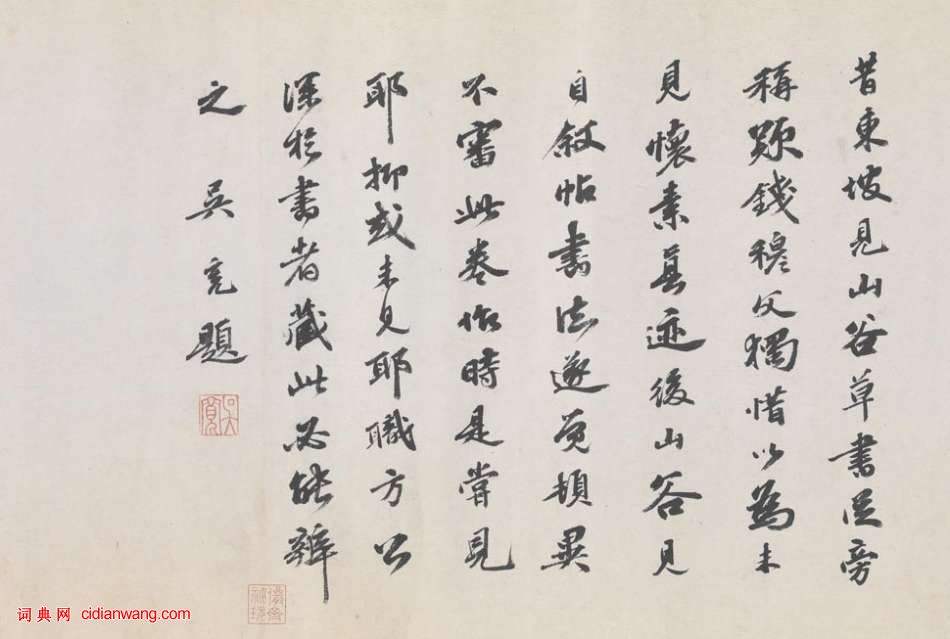 昔東坡見山谷草書從旁
稱歎錢穆父獨惜以為未
見懷素真迹後山谷見
自敘帖書法遂覺頓異
不審此卷作時是嘗見
耶抑或未見耶職方公
深於書者藏此必能辨
之 吳寬題
詞典網 cidianwang.com